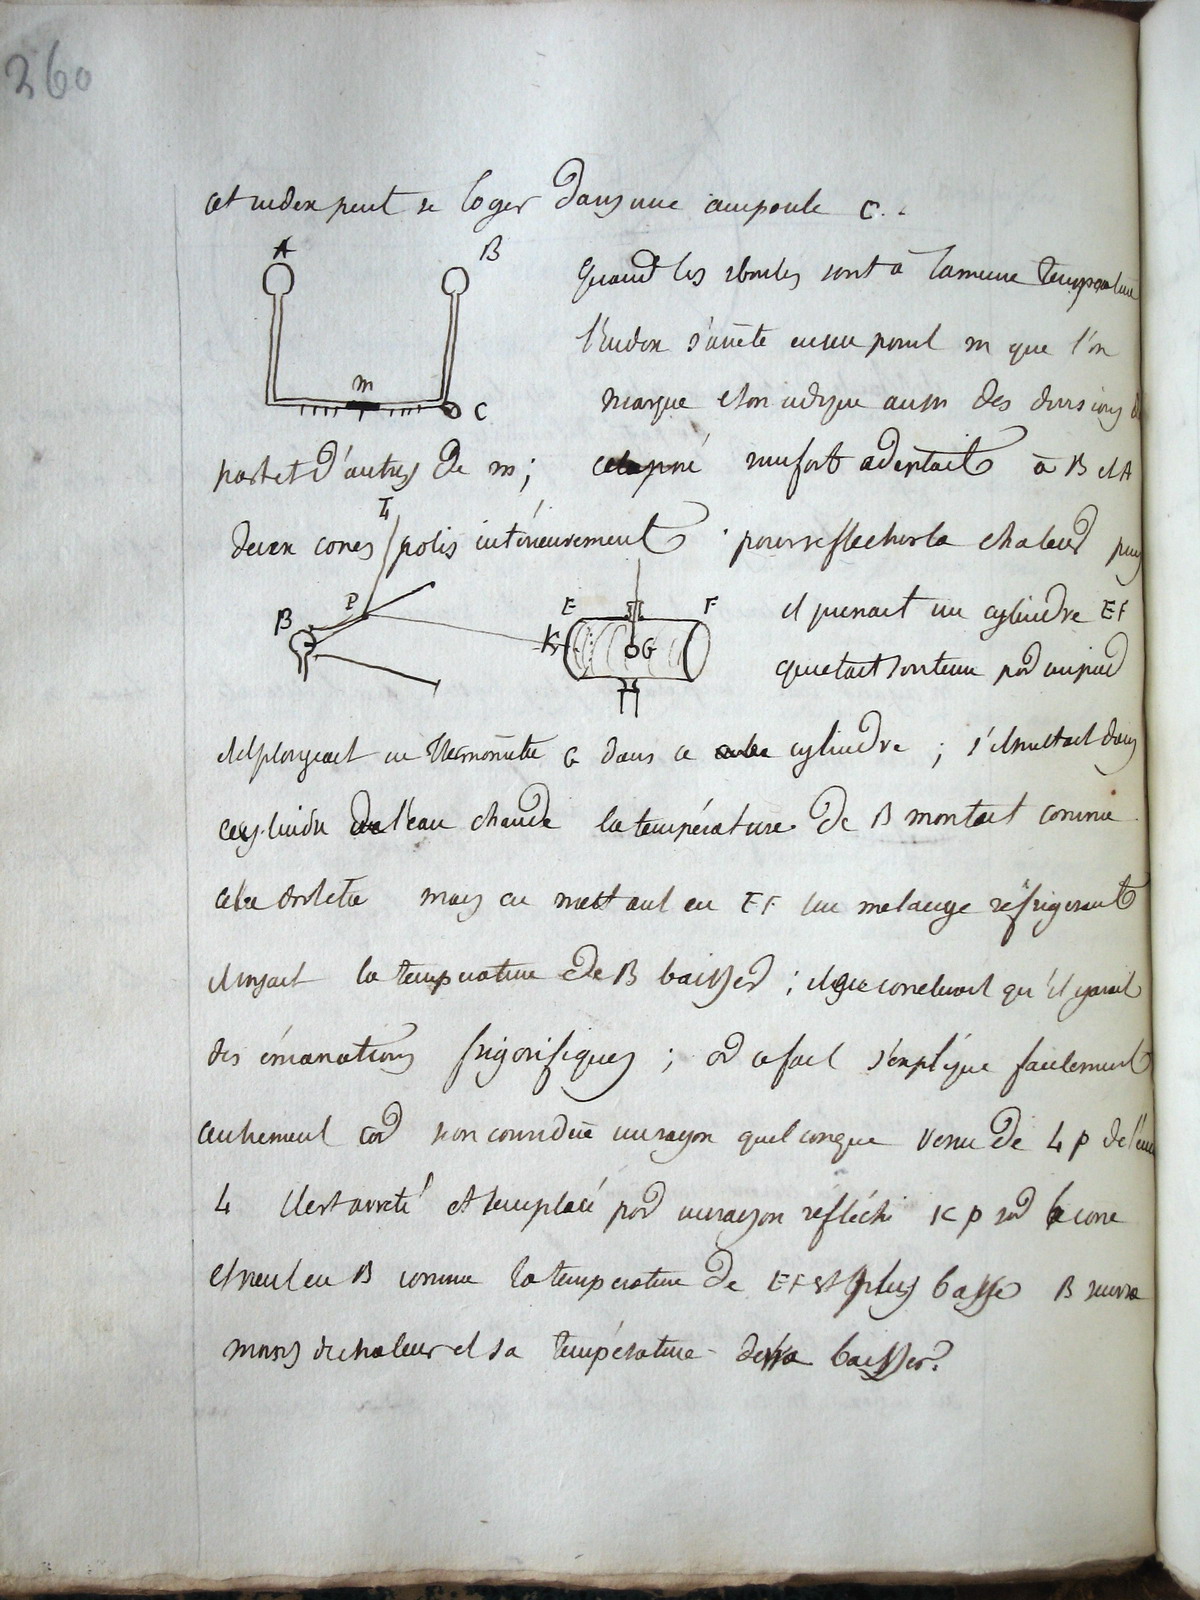 260
cet index peut se loger dans une ampoule C.
A B
Quand les boules sont à la meme temperature
l'index s'arrète en un point m que l'on
m
marque et on indique aussi des divisions de
C
part et d'autres de m; cela posé rumfort adaptait à B et A
L
deux cones polis intérieurement pour reflechir la chaleur puis
P E F
B K G
il prenait un cylindre EF
qui etait soutenu par un pied
et il plongeait un thermomètre G dans ce cylindre ; s'il mettait dans
ce cylindre de l'eau chaude la température de B montait comme
cela doit etre mais en mettant en EF un melange réfrigerant
il voyait la temperature de B baisser ; il en concluait qu'il y avait
des émanations frigorifiques ; or ce fait s'explique facilement
autrement car si on considère un rayon quelconque venu de LP
L Il est arreté et remplacé par un rayon réfléchi KP sur le cone
et venu en B comme la temperature de EF est plus basse B
moins de chaleur et sa température devra baisser.